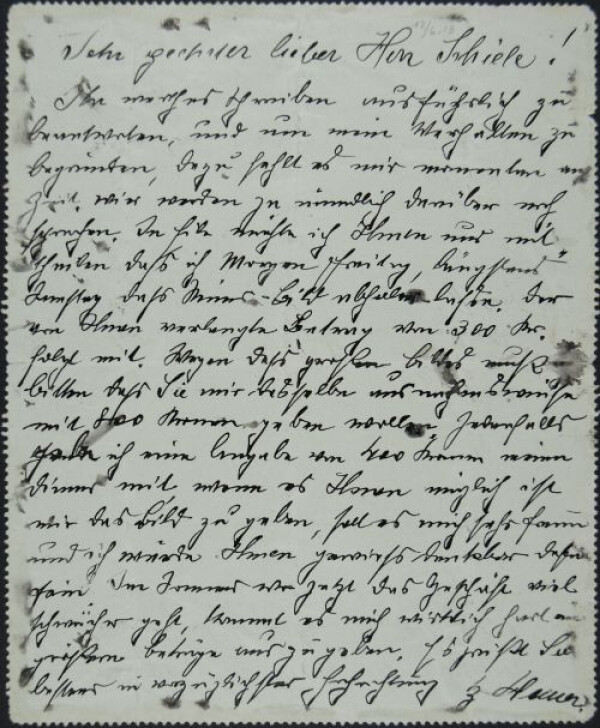 Sehr geehrter lieber Herr Schiele!
Ihr werthes Schreiben ausführlich zu
beantworten, und um mein Verhalten zu
begründen, dazu fehlt es mir momentan an
Zeit, wir werden ja mündlich darüber noch
sprechen. In Eile möchte ich Ihnen nur mit
theilen dass ich Morgen Freitag, längstens
Samstag dass kleine Bild abholen lasse. Der
von Ihnen verlangte Betrag von 300 Kr.
folgt mit. Wegen dass großen Bildes muß
bitten dass Sie mir dasselbe ausnahmsweise
mit 800 Kronen geben wollen. Jedenfalls
ich eine Angabe von 400 Kronen meinem
Diener mit, wenn es Ihnen möglich ist
mir das Bild zu geben, soll es mich sehr freuen
und ich würde Ihnen gewiss dankbar dafür
sein. Im Sommer wo jetzt das Geschäft viel
schwächer geht, kommt es mich wirklich hart an
größere Beträge auszugeben. Es grüßt Sie
bestens in vorzüglichster Hochachtung F Hauer.